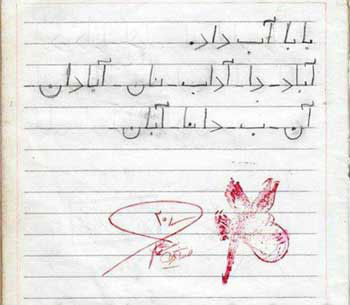 بابا آب داد.
آباد دا آداب نان آبادان
آن ب دانا آبان
۲۰